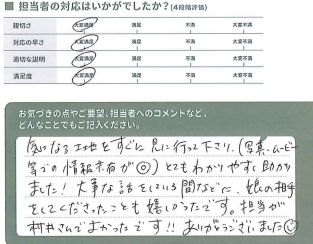 ■ 担当者の対応はいかがでしたか？(4段階評価)
親切さ 大変満足 満足 不満 大変不満
対応の早さ 大変満足 満足 不満 大変不満
適切な説明 大変満足 満足 不満 大変不満
満足度 大変満足 満足 不満 大変不満
お気づきの点やご要望、担当者へのコメントなど、
どんなことでもご記入ください。
気になる土地をすぐに見に行って下さり、(写真、ムービー
等での情報共有が◎)とてもわかりやすく助かり
ました！大事な話をしている間などに、娘の相手
をしてくださったことも嬉しかったです。担当が
村井さんでよかったです!!ありがとうございました